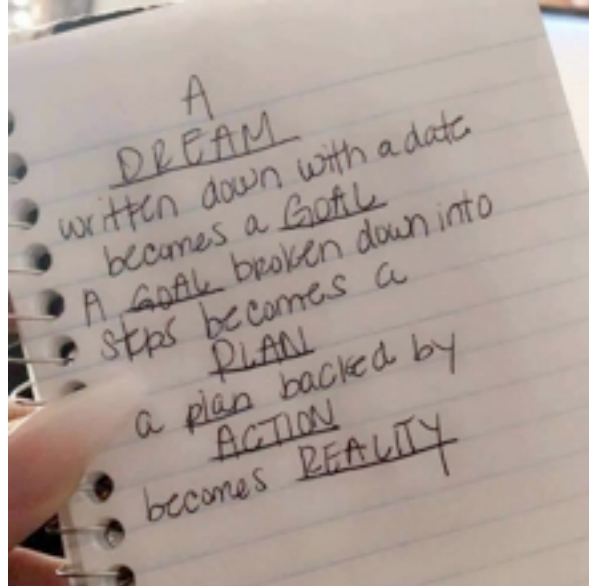 A
DREAM
written down with a date
becomes a GOAL
A GOAL broken down into
steps becomes a
PLAN
a plan backed by
ACTION
becomes REALITY